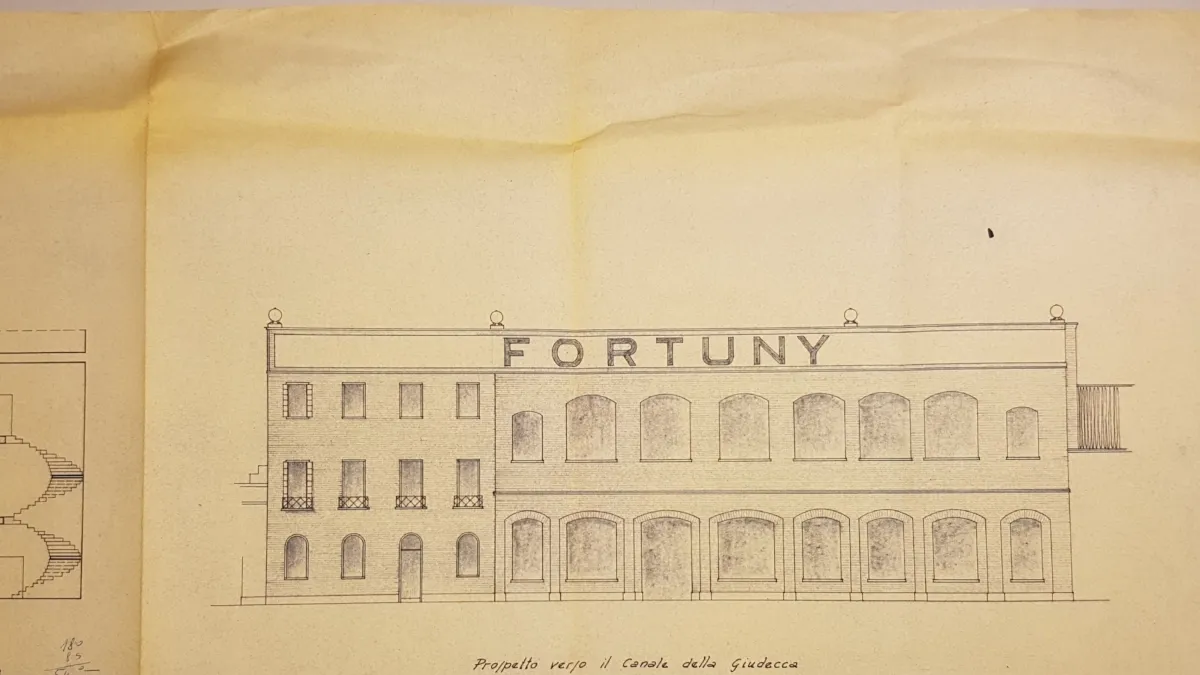 FORTUNY
180
Prospetto verso il Canale della Giudecca